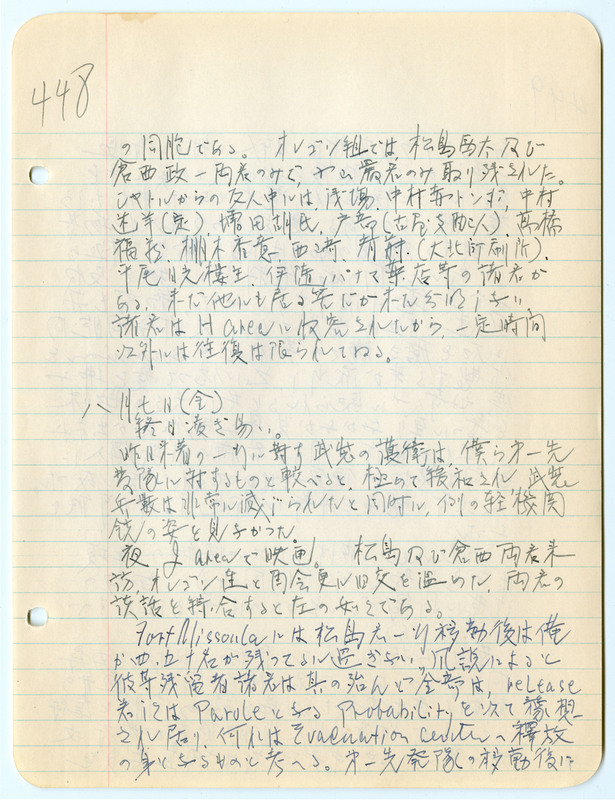 448
の同胞である。オレゴン組では松島 及び
倉西政一両君のみで、 君のみ取り残された。
シャトルからの友人中には、浅場、中村 、中村
、増田 氏、戸部(古屋支配人)、高橋
福 、棚木香 、西崎、 (大北印刷所)、
平尾日 楼主、伊佐、パナマ薬店等の諸君が
ある。まだ他にも居る筈だがまだ分明しない
諸君は H area に収容されたから、一定時間
以外には往復は限られてゐる。
八月七日(金)
終日凌ぎ易い。
昨日来着の一行に対する武装の護衛は、僕ら第一先
発隊に対するものと較べると、極めて緩和され武装
兵数は非常に減じられたと同時に、例の軽機関
銃の姿を見なかった。
夜 J area で映画。 松島及び倉西両君来
訪、オレゴン連と再会更に旧交を温めた、両君の
談話を綜合すると左の如くである。
Fort Missoula には松島君一行移動後は僅
か四、五十名が残ってるに過ぎない。 説によると
彼等残留者諸君は其の殆んど全部は、release
若しくは Parole となる Probability を以て予想
され居り、何れは Evacuation center へ釈放
の身となるものと考へる。第一先発隊の移動後に